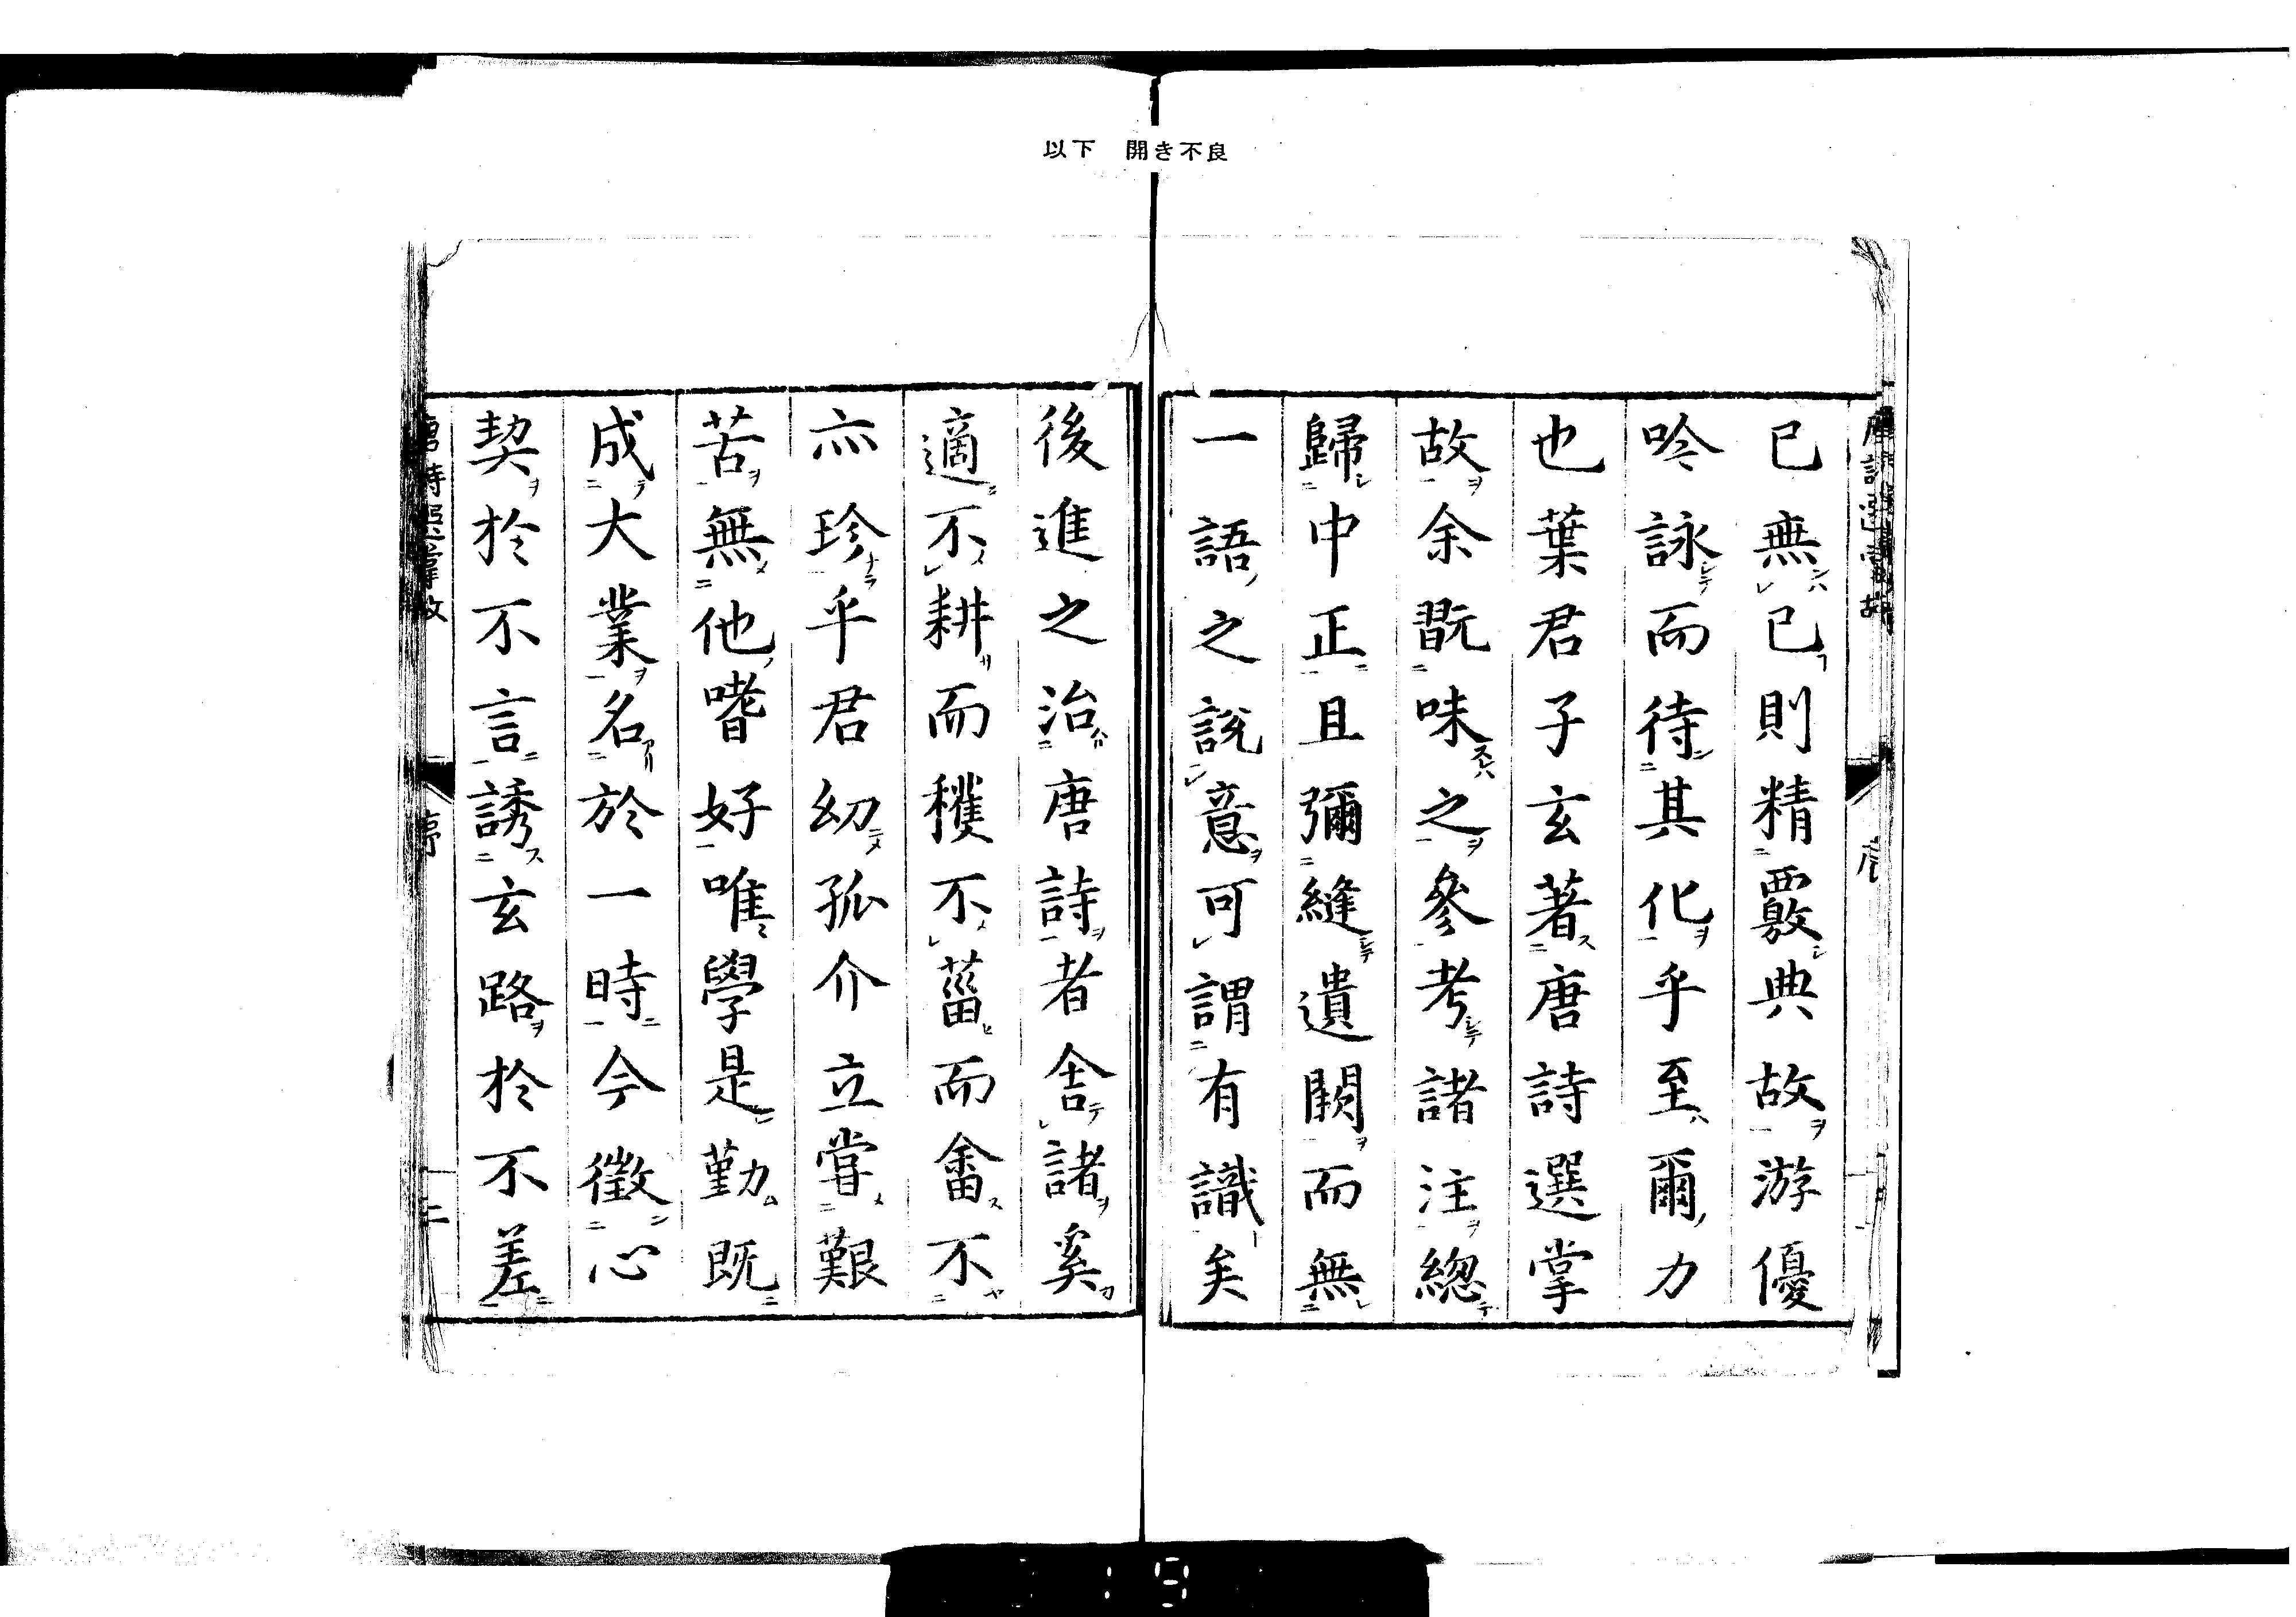 以下 開き不良
已無已則精覈典故游優
吟詠而待其化乎至爾力
也葉君子玄著唐詩選掌
故余翫味之參考諸注總
歸中正且彌縫遺闕而無
一語之說意可謂有識矣
後進之治唐詩者舍諸奚
適不耕而穫不菑而畬不
亦珍乎君幼孤介立嘗艱
苦無他嗜好唯學是勤既
成大業名於一時今徵心
契於不言誘玄路於不差
唐詩選掌故 序 二